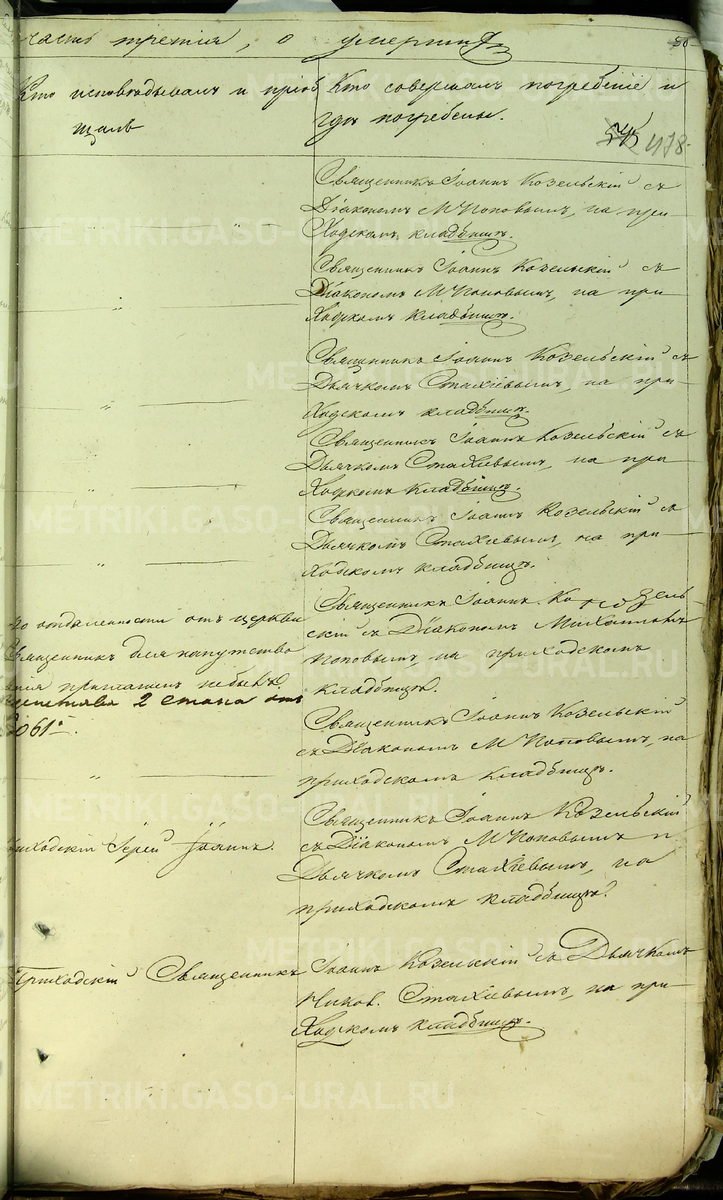 часть третія, о умершихъ
Кто исповѣдывалъ и пріоб
щалъ
Кто совершалъ погребеніе и
гдѣ погребены.
478.
Священникъ Іоаннъ Козельскій съ
Діакономъ М Поповымъ, на при-
ходскомъ кладбищѣ.
Священникъ Іоаннъ Козельскій съ
Діакономъ М Поповымъ, на при-
ходскомъ кладбищѣ.
Священникъ Іоаннъ Козельскій съ
Дьячкомъ Стахіевымъ, на при-
ходскомъ кладбищѣ.
Священникъ Іоаннъ Козельскій съ
Дьячкомъ Стахіевымъ, на при-
ходскомъ кладбищѣ.
Священникъ Іоаннъ Козельскій съ
Дьячкомъ Стахіевымъ, на при-
ходскомъ кладбищѣ.
по отдаленности отъ церкви
Священникъ для напутство
ванія приглашенъ не былъ.
2 стана отъ
Священникъ Іоаннъ Козель-
скій съ Діакономъ Михаиломъ
Поповымъ на приходскомъ
кладбищѣ.
Священникъ Іоаннъ Козельскій
съ Діакономъ М Поповымъ, на
приходскомъ кладбищѣ.
приходскій Іерей Іоаннъ.
Священникъ Іоаннъ Козельскій
съ Діакономъ М Поповымъ и
Дьячкомъ Стахіевымъ, на
приходскомъ кладбищѣ.
Приходскій Священникъ
Іоаннъ Козельскій съ Дьячкомъ
Ников. Стахіевымъ, на при-
ходскомъ кладбищѣ.
METRIKI.GASO-URAL.RU